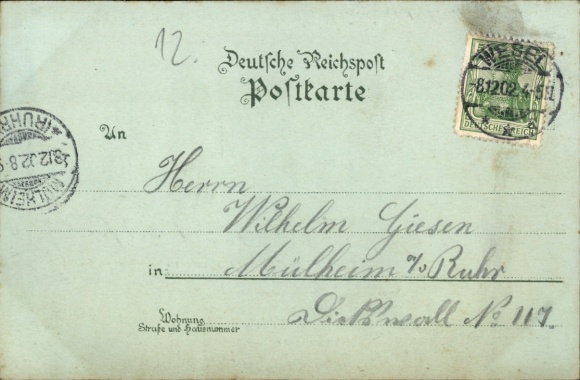 12.
Deutsche Reichspost
Postkarte
WESEL
8.12.02. 4-5N
DEUTSCHES REICH
(RUHR)
8.12.02.8-9
MÜLHEIM
An
Herrn
Wilhelm Giesen
in Mülheim a/d Ruhr
Dickswall No 117.
Wohnung
Straße und Hausnummer